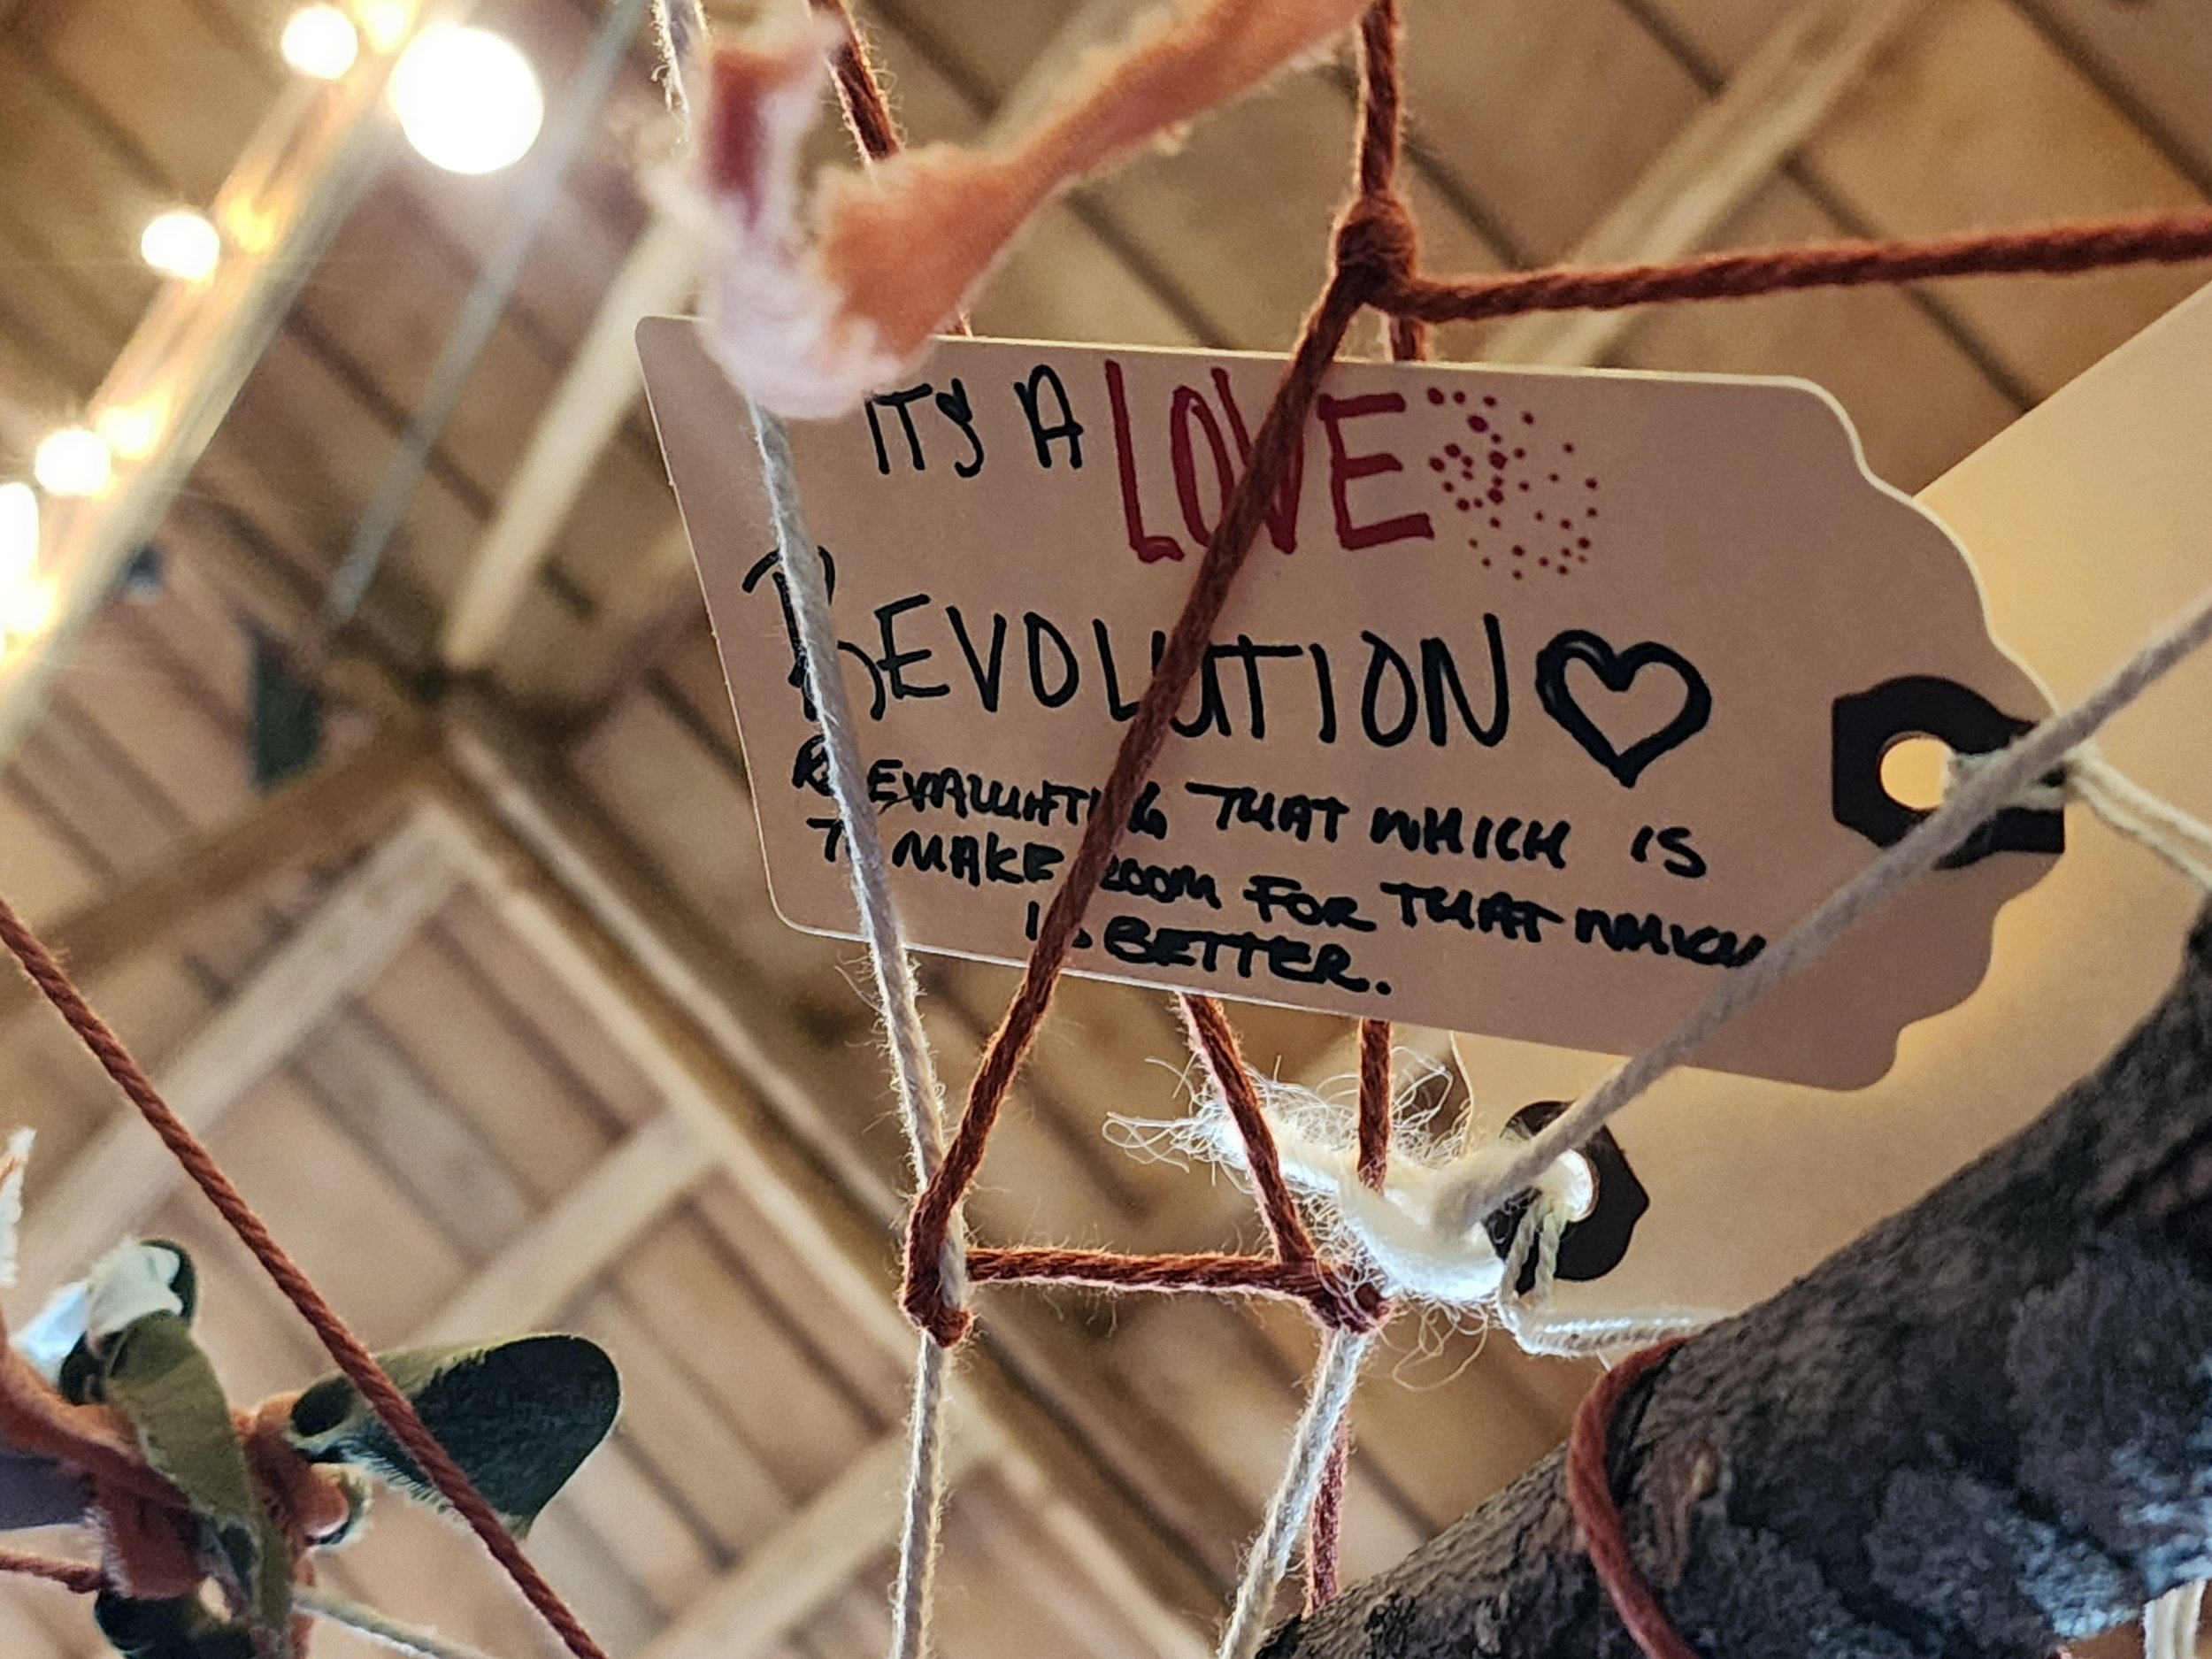 ITS A LOVE
REVOLUTION
RE EVALUATING THAT WHICH IS
TO MAKE ROOM FOR THAT WHICH
IS BETTER.